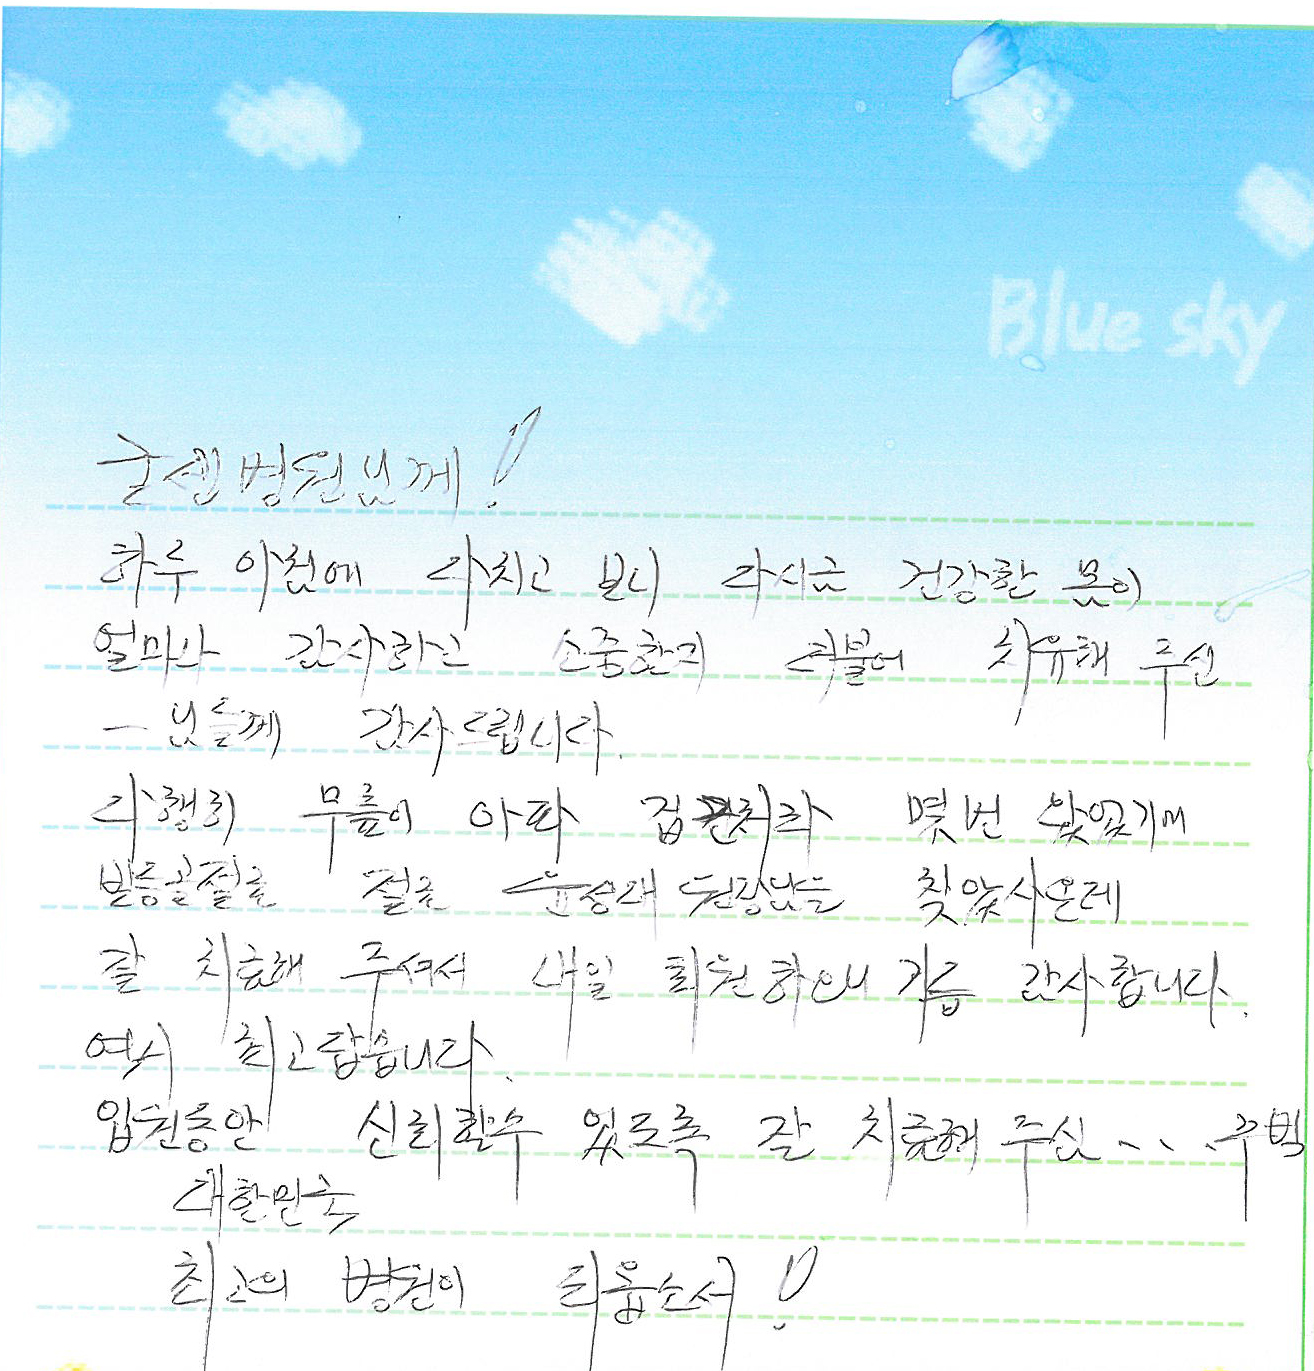 Blue sky
병원님께!
하루 아침에 다치고 보니 다시금 건강한 몸이
얼마나 감사하고 소중한지 더불어 치유해 주신
님들께 감사드립니다.
다행히 무릎이 아파 집 몇번 왔었기에
발등골절로 절로 윤성대 원장님을 찾았사온데
잘 치료해 주셔서 내일 퇴원하오니 거듭 감사합니다.
역시 최고답습니다.
입원동안 신뢰할수 있도록 잘 치료해 주심、、、꾸벅
대한민국
최고의 병원이 되옵소서!